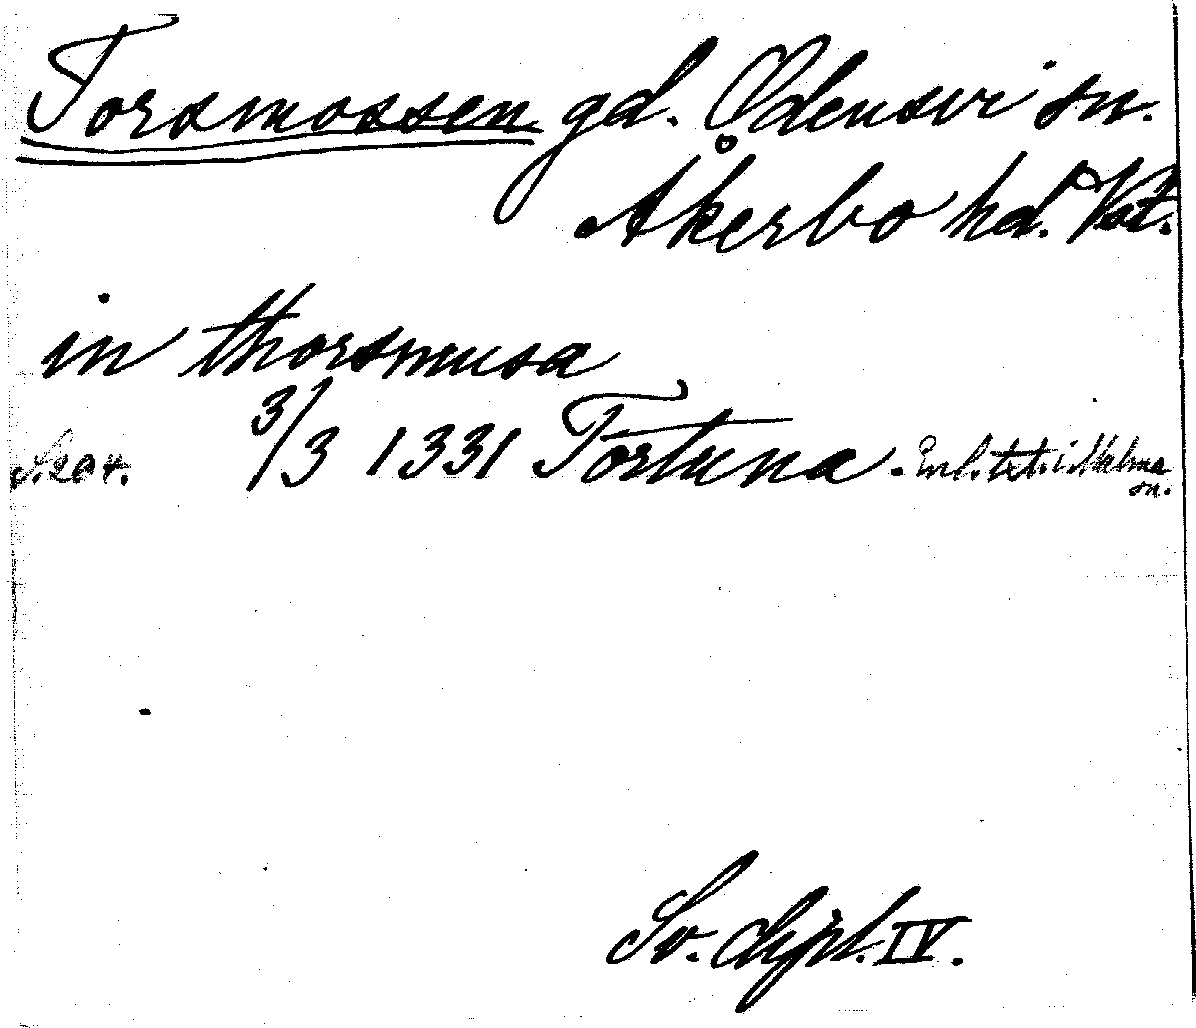 Torsmossen gd. Odensvi sn.
Åkerbo hd. Vstm.
in thorsmusa
S. 204. 3/3 1331 Tortuna. Enl. txt. i Malma
sn.
Sv. dipl. IV.